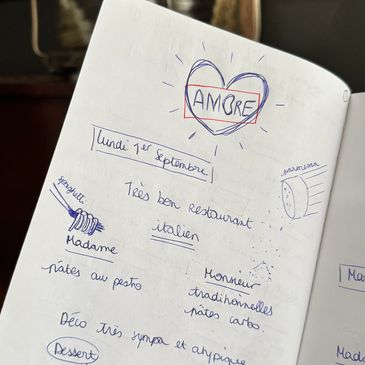 AMORE
Lundi 1er Septembre
parmesan
Très bon restaurant
spaghetti
italien
Madame
Monsieur
pâtes au pesto
traditionnelles
pâtes carbo.
Déco très sympa et atypique
Dessert